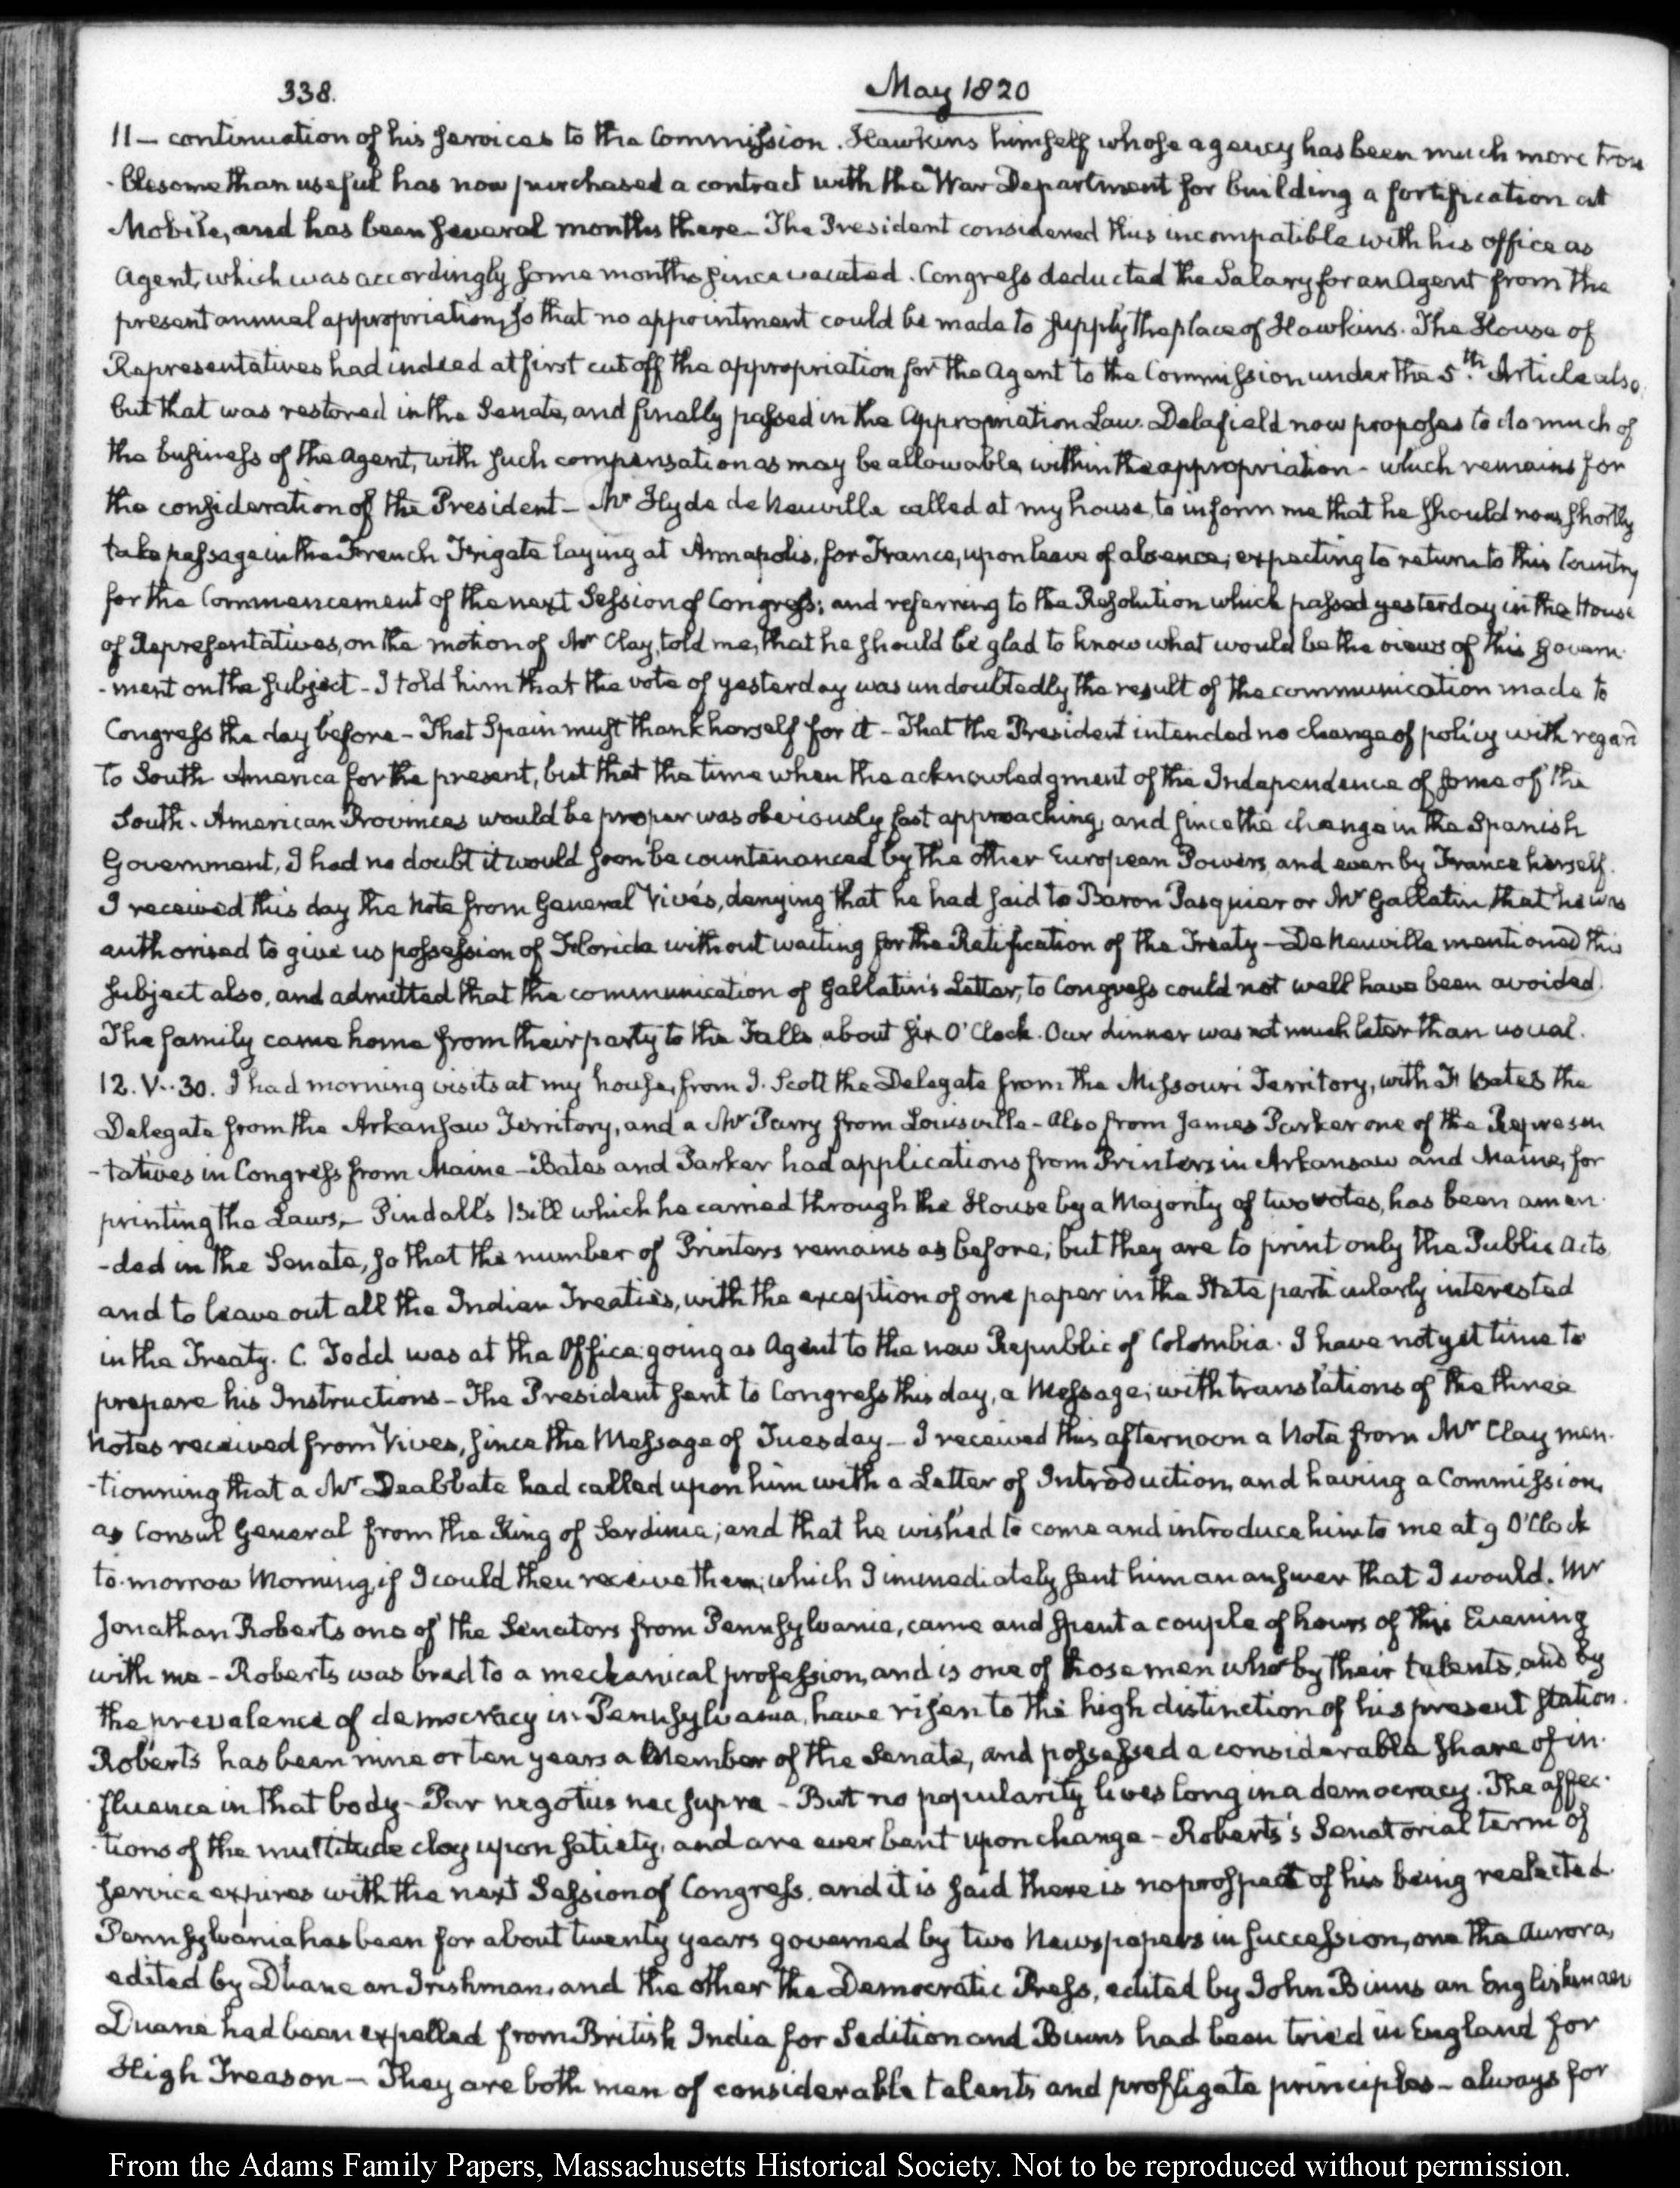 338.
May 1820
11 — continuation of his services to the Commission. Hawkins himself whose agency has been much more trou
-blesome than useful has now purchased a contract with the War Department for building a fortification at
Mobile, and has been several months there — The President considered this incompatible with his office as
Agent, which was accordingly some months since vacated. Congress deducted the Salary for an Agent from the
present annual appropriation, so that no appointment could be made to supply the place of Hawkins. The House of
Representatives had indeed at first cut off the appropriation for the Agent to the Commission under the 5th. Article also,
but that was restored in the Senate, and finally passed in the Appropriation Law. Delafield now proposes to do much of
the business of the Agent, with such compensation as may be allowable within the appropriation — which remains for
the consideration of the President — Mr Hyde de Neuville called at my house, to inform me that he should now shortly
take passage in the French Frigate laying at Annapolis, for France, upon leave of absence; expecting to return to this Country
for the Commencement of the next Session of Congress; and referring to the Resolution which passed yesterday in the House
of Representatives, on the motion of Mr Clay, told me, that he should be glad to know what would be the views of this Govern-
-ment on the subject — I told him that the vote of yesterday was undoubtedly the result of the communication made to
Congress the day before — That Spain must thank herself for it — That the President intended no change of policy with regard
to South America for the present, but that the time when the acknowledgment of the Independence of some of the
South-American Provinces would be proper was obviously fast approaching, and since the change in the Spanish
Government, I had no doubt it would soon be countenanced by the other European Powers, and even by France herself.
I received this day the Note from General Vivés, denying that he had said to Baron Pasquier or Mr Gallatin, that he was
authorised to give us possession of Florida without waiting for the Ratification of the Treaty — De Neuville mentioned this
subject also, and admitted that the communication of Gallatin's Letter, to Congress could not well have been avoided.
The family came home from their party to the Falls about six O'Clock. Our dinner was not much later than usual.
12. V..30. I had morning visits at my house, from J. Scott the Delegate from the Missouri Territory, with Bates the
Delegate from the Arkansaw Territory, and a Mr Parry from Louisville — Also from James Parker one of the Represen
-tatives in Congress from Maine — Bates and Parker had applications from Printers in Arkansaw and Maine, for
printing the Laws. — Pindall's Bill which he carried through the House by a Majority of two votes, has been amen-
-ded in the Senate, so that the number of Printers remains as before; but they are to print only the Public Acts,
and to leave out all the Indian Treaties, with the exception of one paper in the State particularly interested
in the Treaty. C. Todd was at the Office: going as Agent to the new Republic of Colombia. I have not yet time to
prepare his Instructions — The President sent to Congress this day, a Message; with translations of the three
Notes received from Vives, since the Message of Tuesday — I received this afternoon a Note from Mr Clay men-
-tionning that a Mr Deabbate had called upon him with a Letter of Introduction, and having a Commission,
as Consul General from the King of Sardinia; and that he wished to come and introduce him to me at 9 O'Clock
to-morrow Morning, if I could then receive them; which I immediately sent him an answer that I would. Mr
Jonathan Roberts one of the Senators from Pennsylvania, came and spent a couple of hours of this Evening
with me — Roberts was bred to a mechanical profession, and is one of those men who by their talents, and by
the prevalence of democracy in Pennsylvania, have risen to the high distinction of his present station.
Roberts has been nine or ten years a Member of the Senate, and possessed a considerable share of in-
-fluence in that body — Par negotiis nec supra — But no popularity lives long in a democracy. The affec-
-tions of the multitude cloy upon satiety, and are ever bent upon change — Roberts's Senatorial term of
service expires with the next Session of Congress, and it is said there is no prospect of his being reelected.
Pennsylvania has been for about twenty years governed by two Newspapers in succession, one the Aurora,
edited by Duane an Irishman, and the other the Democratic Press, edited by John Binns an Englishman
Duane had been expelled from British India for Sedition and Binns had been tried in England for
High Treason — They are both men of considerable talents and profligate principles — always for
From the Adams Family Papers, Massachusetts Historical Society. Not to be reproduced without permission.